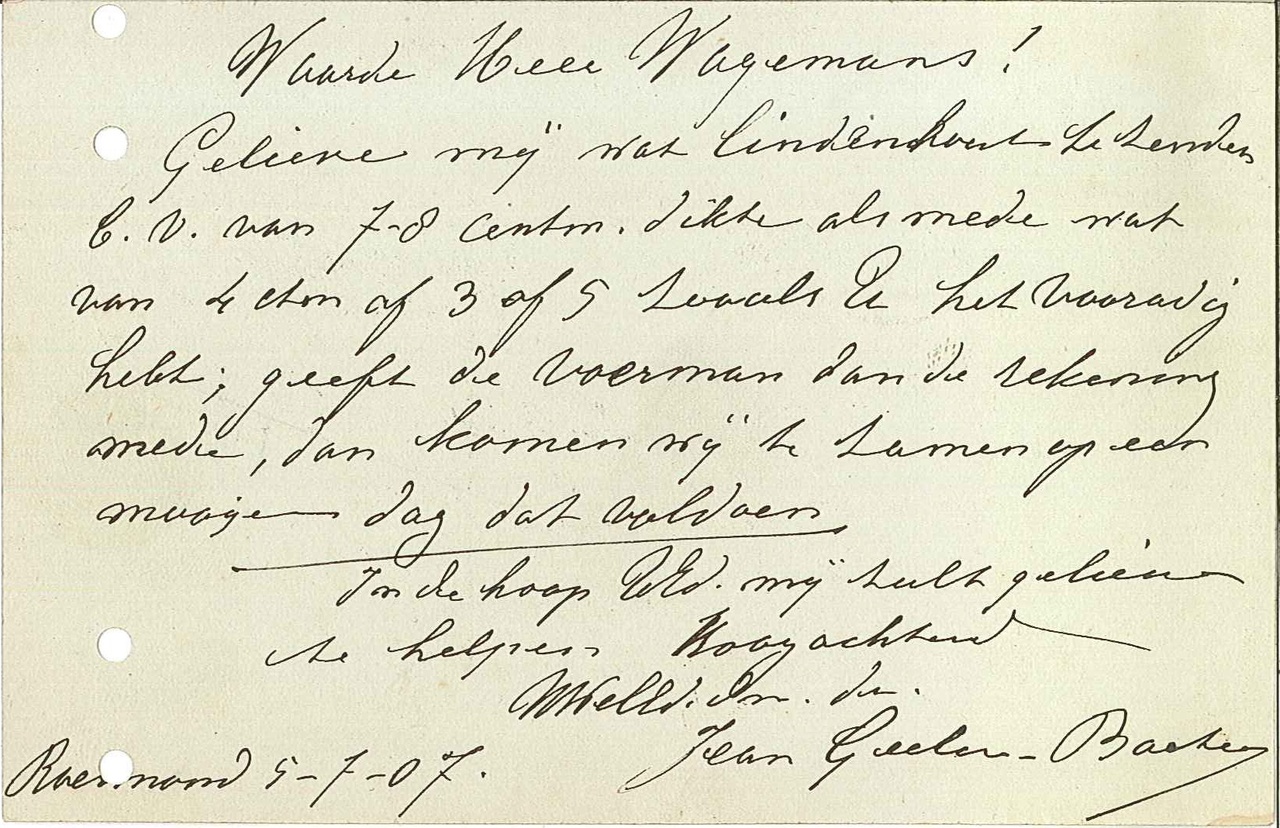 Waarde Heer Wagemans!
Gelieve mij wat lindenhout te zenden
b.v. van 7-8 centm. dikte als mede wat
van 4 ctm of 3 of 5 zooals U het vooradig
hebt; geeft de voerman dan de rekening
mede, dan komen wij te zamen op een
mooije dag dat voldoen
In de hoop UEd. mij zult gelieve
te helpen Hoogachtend
Uw dr.
Jean Geelen-Baeten
Roermond 5-7-07.